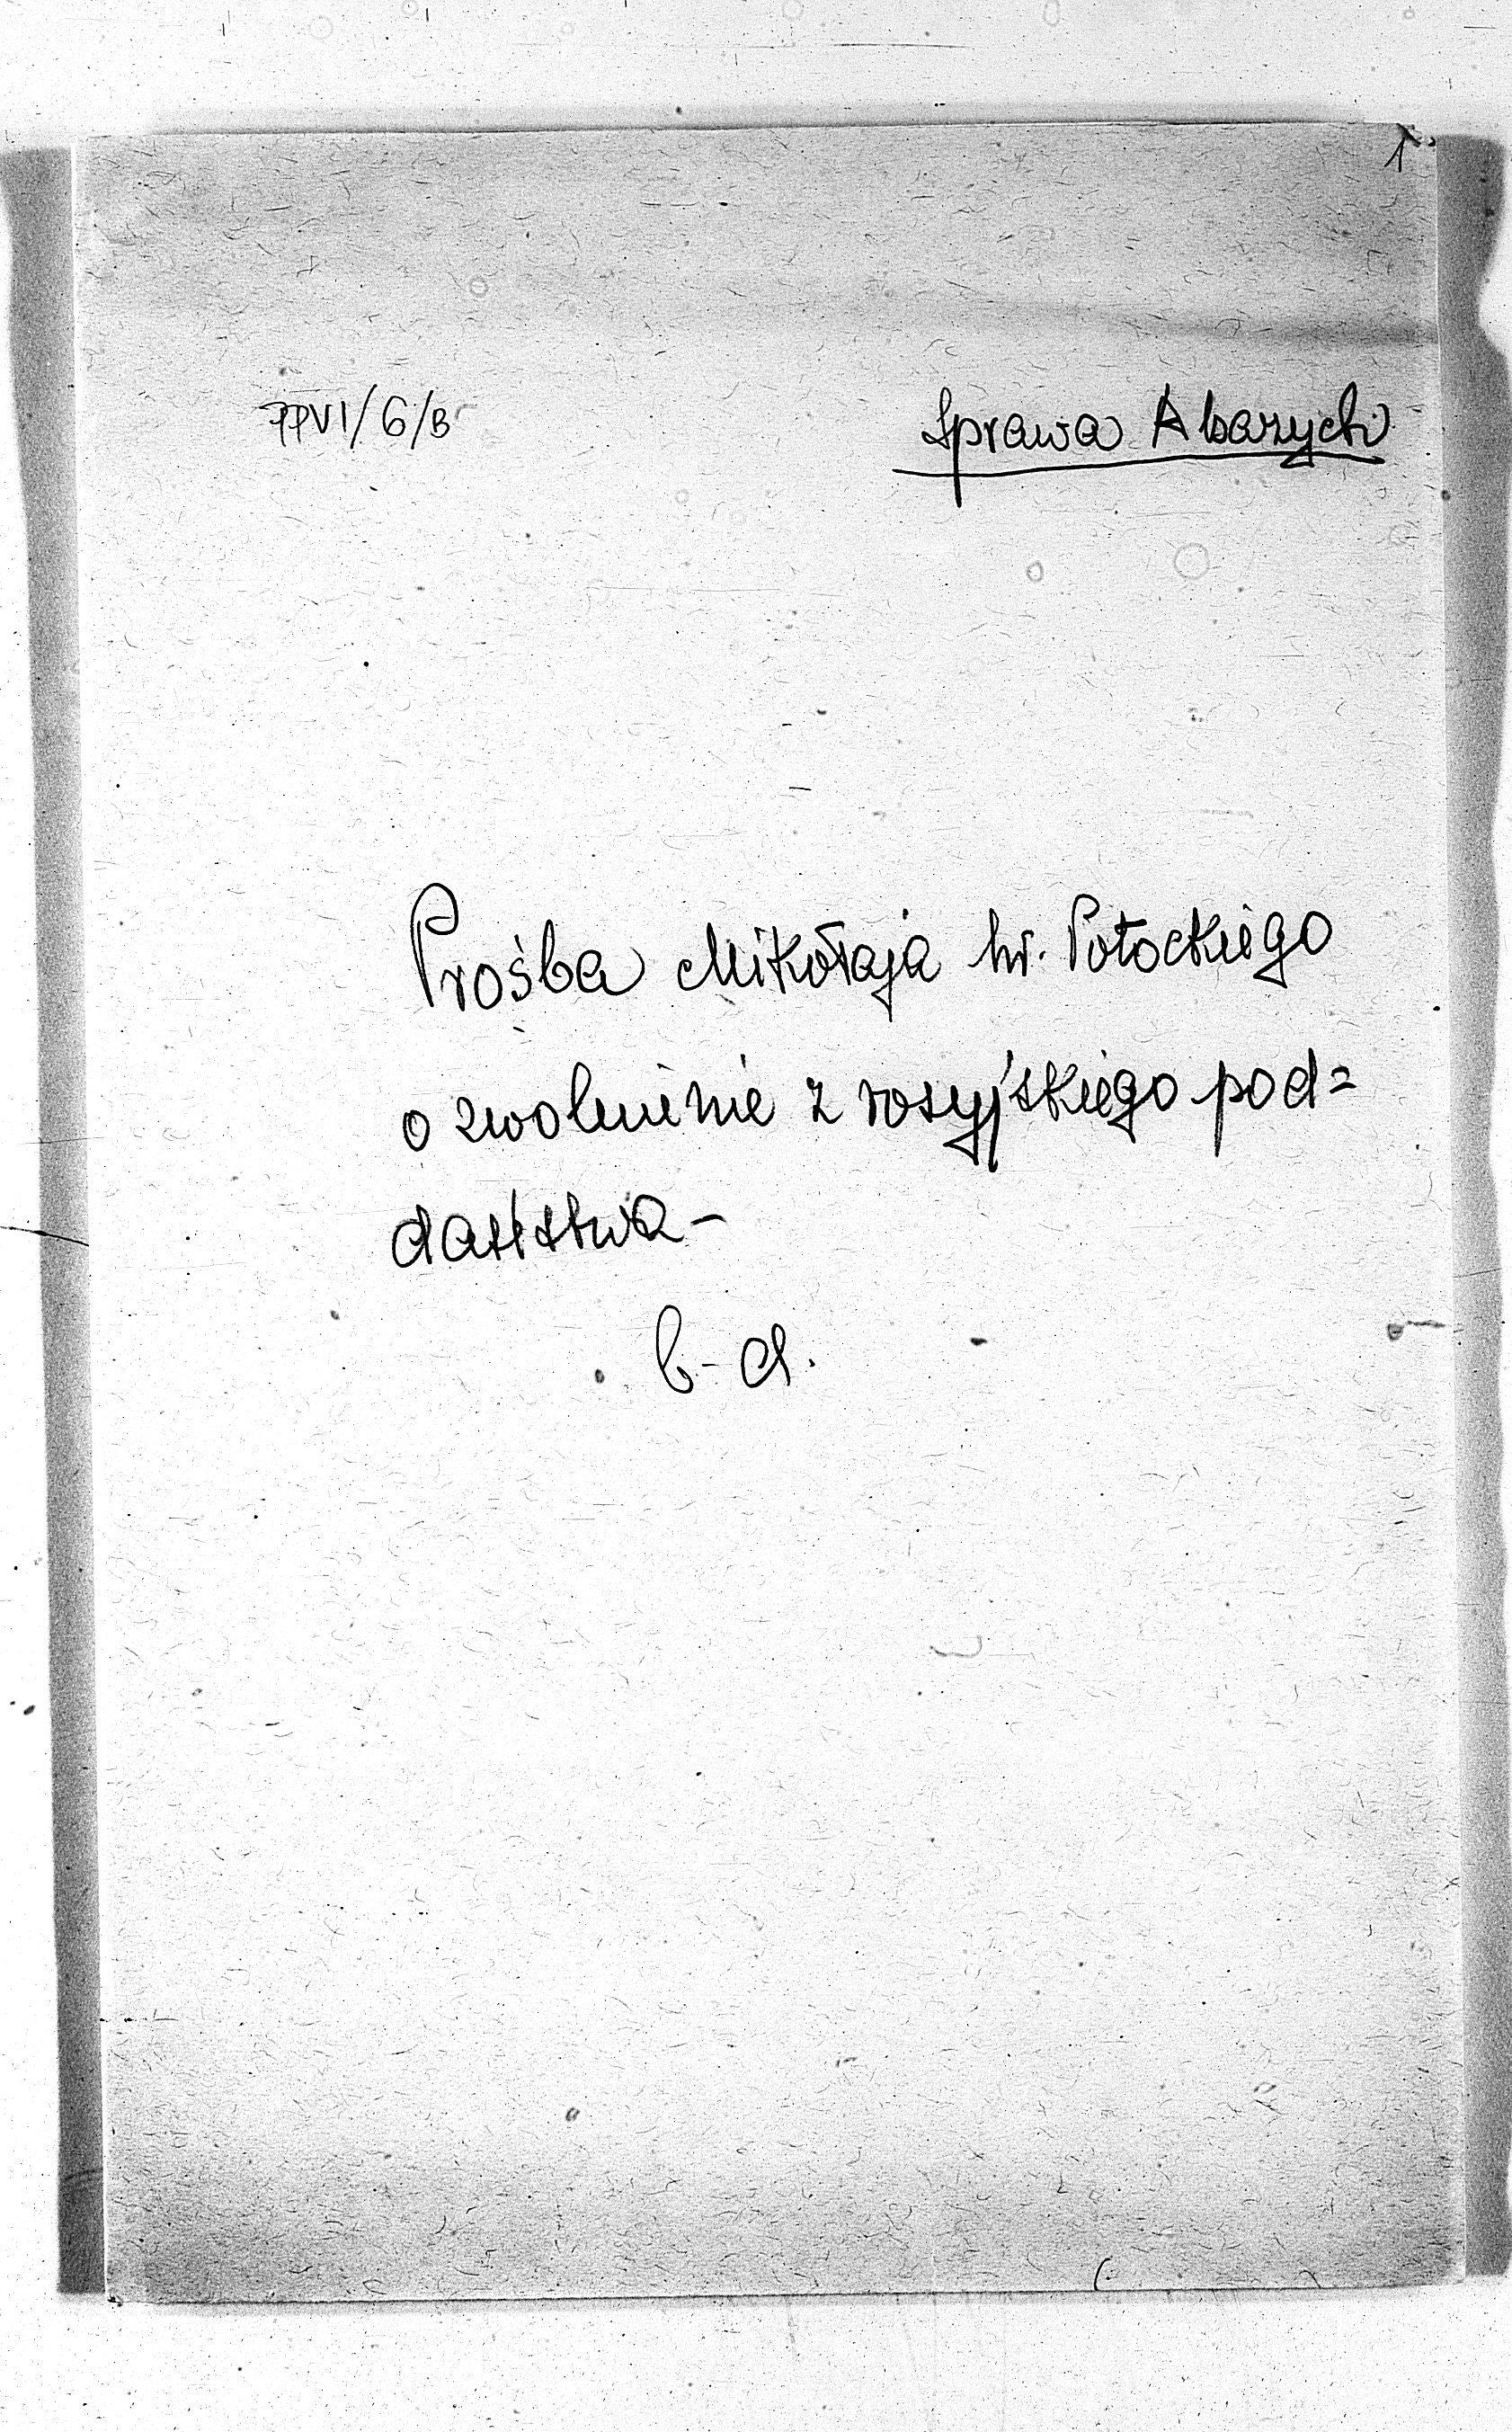 1
PPVI/6/B
Sprawa Abarych
Prośba Mikołaja hr. Potockiego
o zwolnienie z rosyjskiego pod=
daństwa -
b-d.